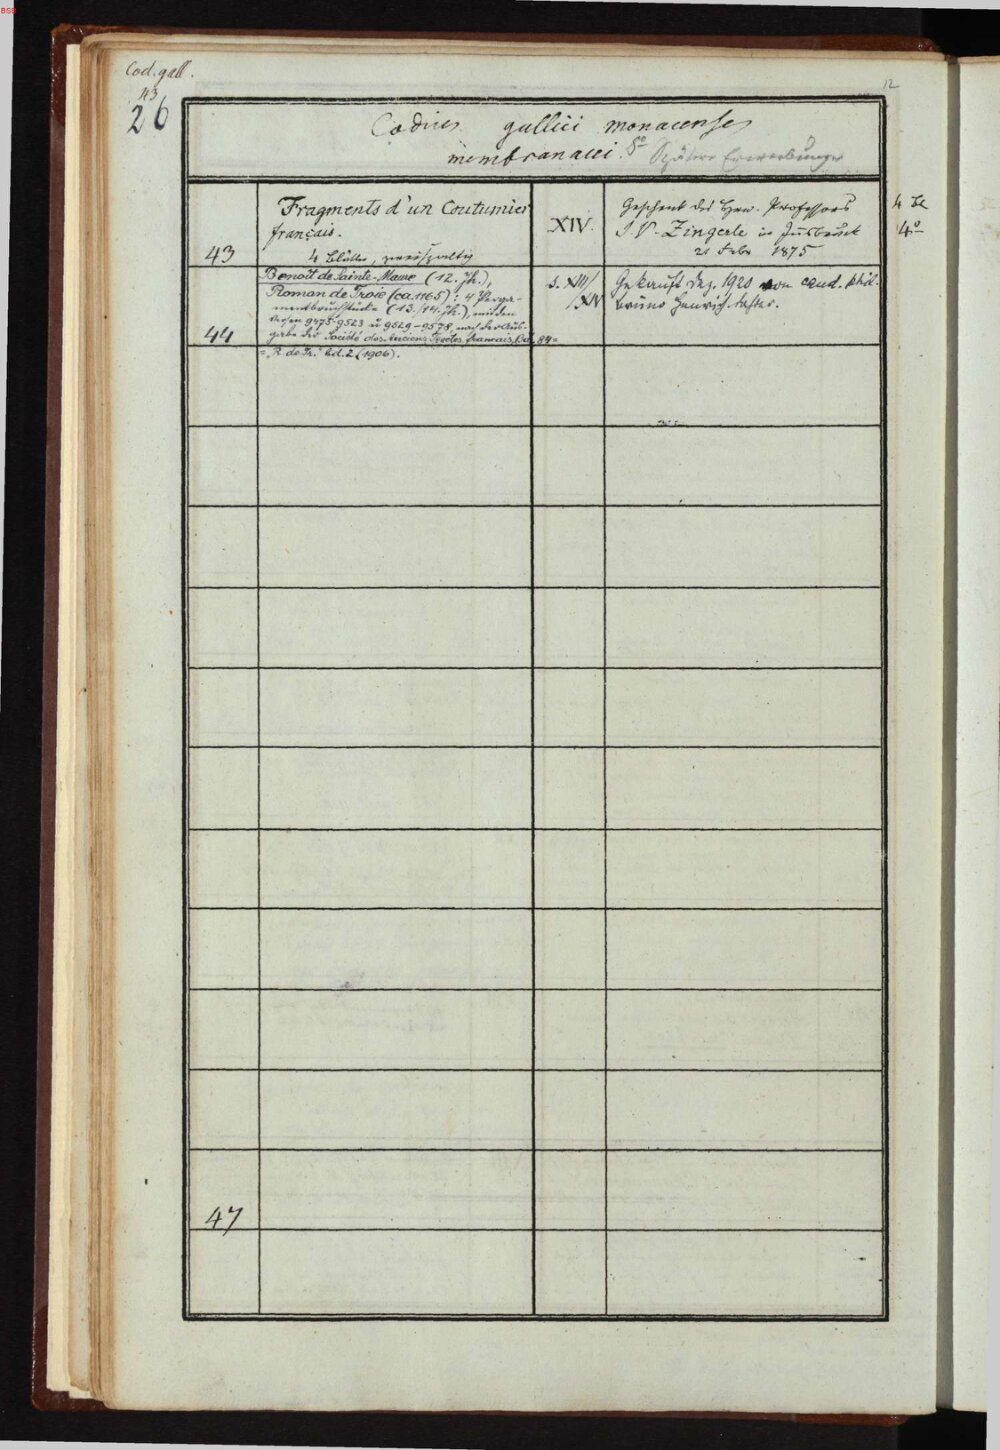 BSB
Cod. gall.
43
26
12
Codices gallici monacenses
membranacei. 8o Spätere Erwerbungen
43
Fragments d'un Coutumier
français.
4 Blätter, zweispaltig
XIV.
Geschenk des Hrn. Professors
I V. Zingerle in Innsbruck
21 Febr 1875
4 Be
4o
44
Benoît de Sainte-Maure (12. Jh.),
Roman de Troie (ca. 1165): 4 Perga-
mentbruchstücke (13./14. Jh.), mit den
Versen 9475-9523 u 9529-9578, nach der Aus-
gabe der Société des Anciens Textes français, Bd. 84 =
= „R. de Tr." Bd. 2 (1906).
s. XIII/
XIV
Gekauft Dez. 1920 von cand. phil.
Bruno Heinrich
47